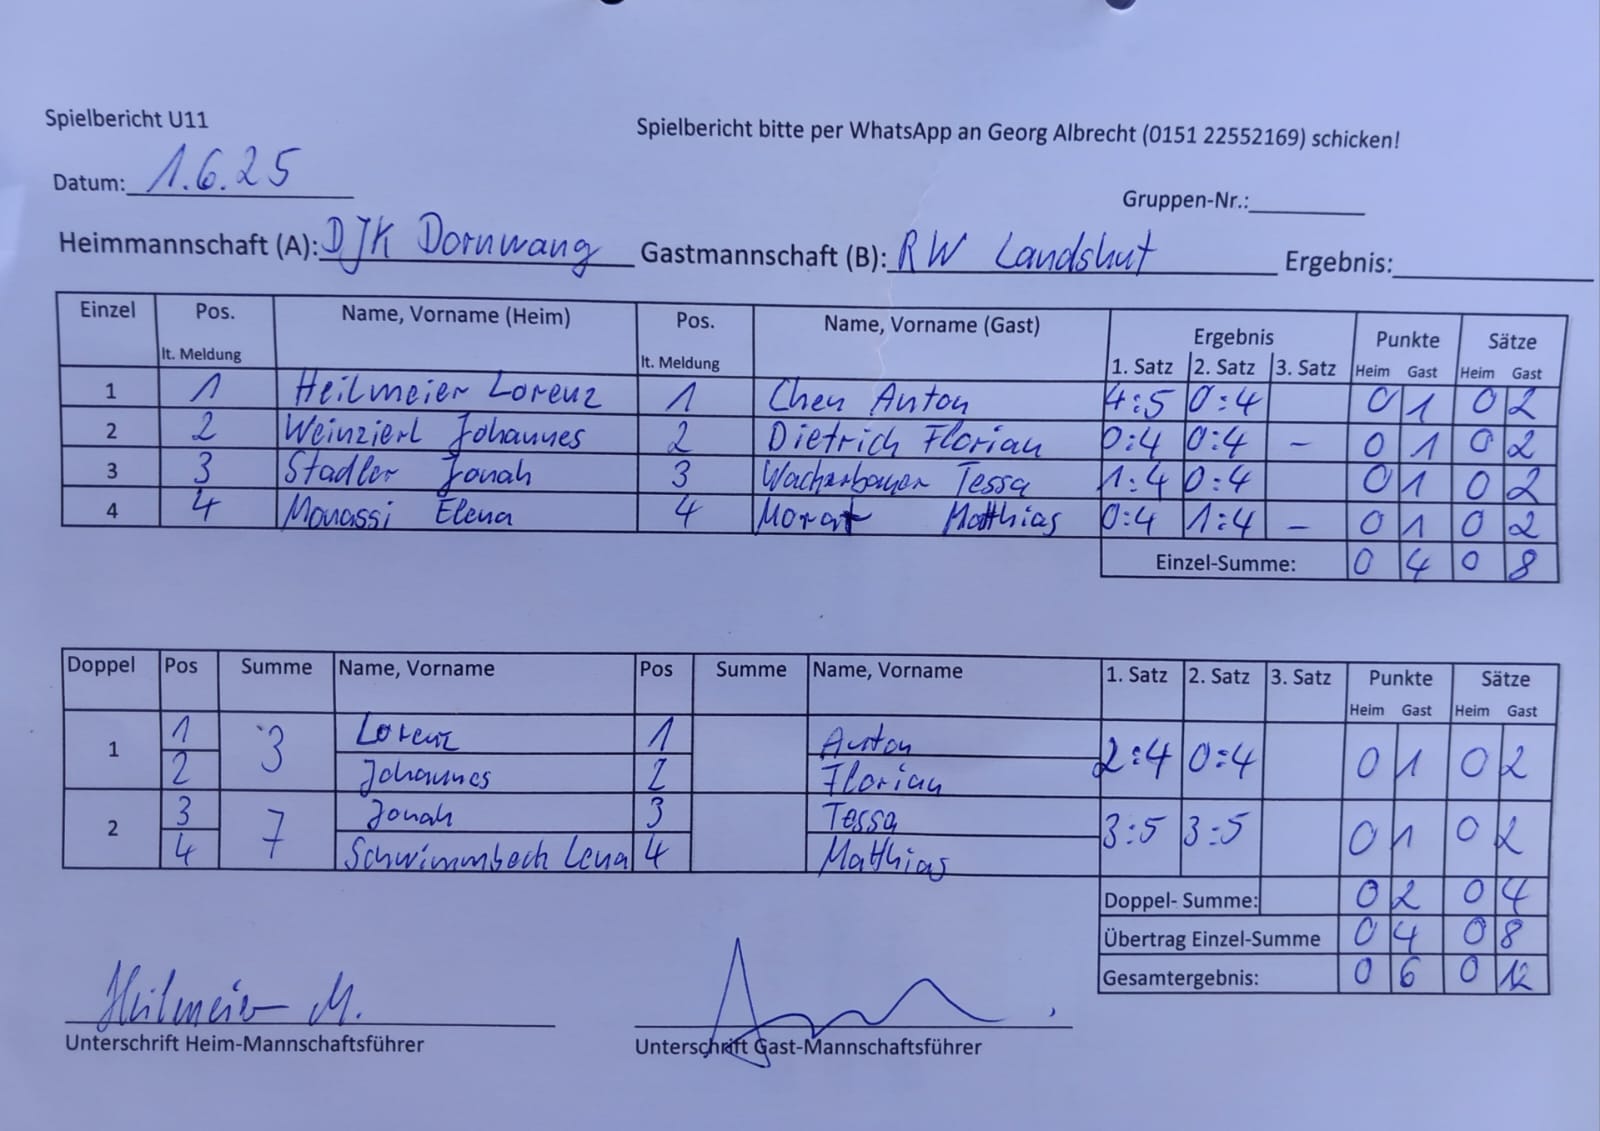 Spielbericht U11
Spielbericht bitte per WhatsApp an Georg Albrecht (0151 22552169) schicken!
Datum: 1.6.25
Gruppen-Nr.:
Heimmannschaft (A): DJK Dornwang Gastmannschaft (B): RW Landshut Ergebnis:
Einzel Pos. lt. Meldung Name, Vorname (Heim) Pos. lt. Meldung Name, Vorname (Gast) Ergebnis 1. Satz 2. Satz 3. Satz Punkte Heim Gast Sätze Heim Gast
1 1 Heilmeier Lorenz 1 Chen Anton 4:5 0:4 0 1 0 2
2 2 Weinzierl Johannes 2 Dietrich Florian 0:4 0:4 – 0 1 0 2
3 3 Stadler Jonah 3 Tessa 1:4 0:4 0 1 0 2
4 4 Monassi Elena 4 Morat Matthias 0:4 1:4 – 0 1 0 2
Einzel-Summe: 0 4 0 8
Doppel Pos Summe Name, Vorname Pos Summe Name, Vorname 1. Satz 2. Satz 3. Satz Punkte Heim Gast Sätze Heim Gast
1 1 3 Lorenz 1 Anton 2:4 0:4 0 1 0 2
2 Johannes 2 Florian
2 3 7 Jonah 3 Tessa 3:5 3:5 0 1 0 2
4 Schwimmbeck Lena 4 Matthias
Doppel- Summe: 0 2 0 4
Übertrag Einzel-Summe 0 4 0 8
Gesamtergebnis: 0 6 0 12
Heilmeier M.
Unterschrift Heim-Mannschaftsführer
Unterschrift Gast-Mannschaftsführer